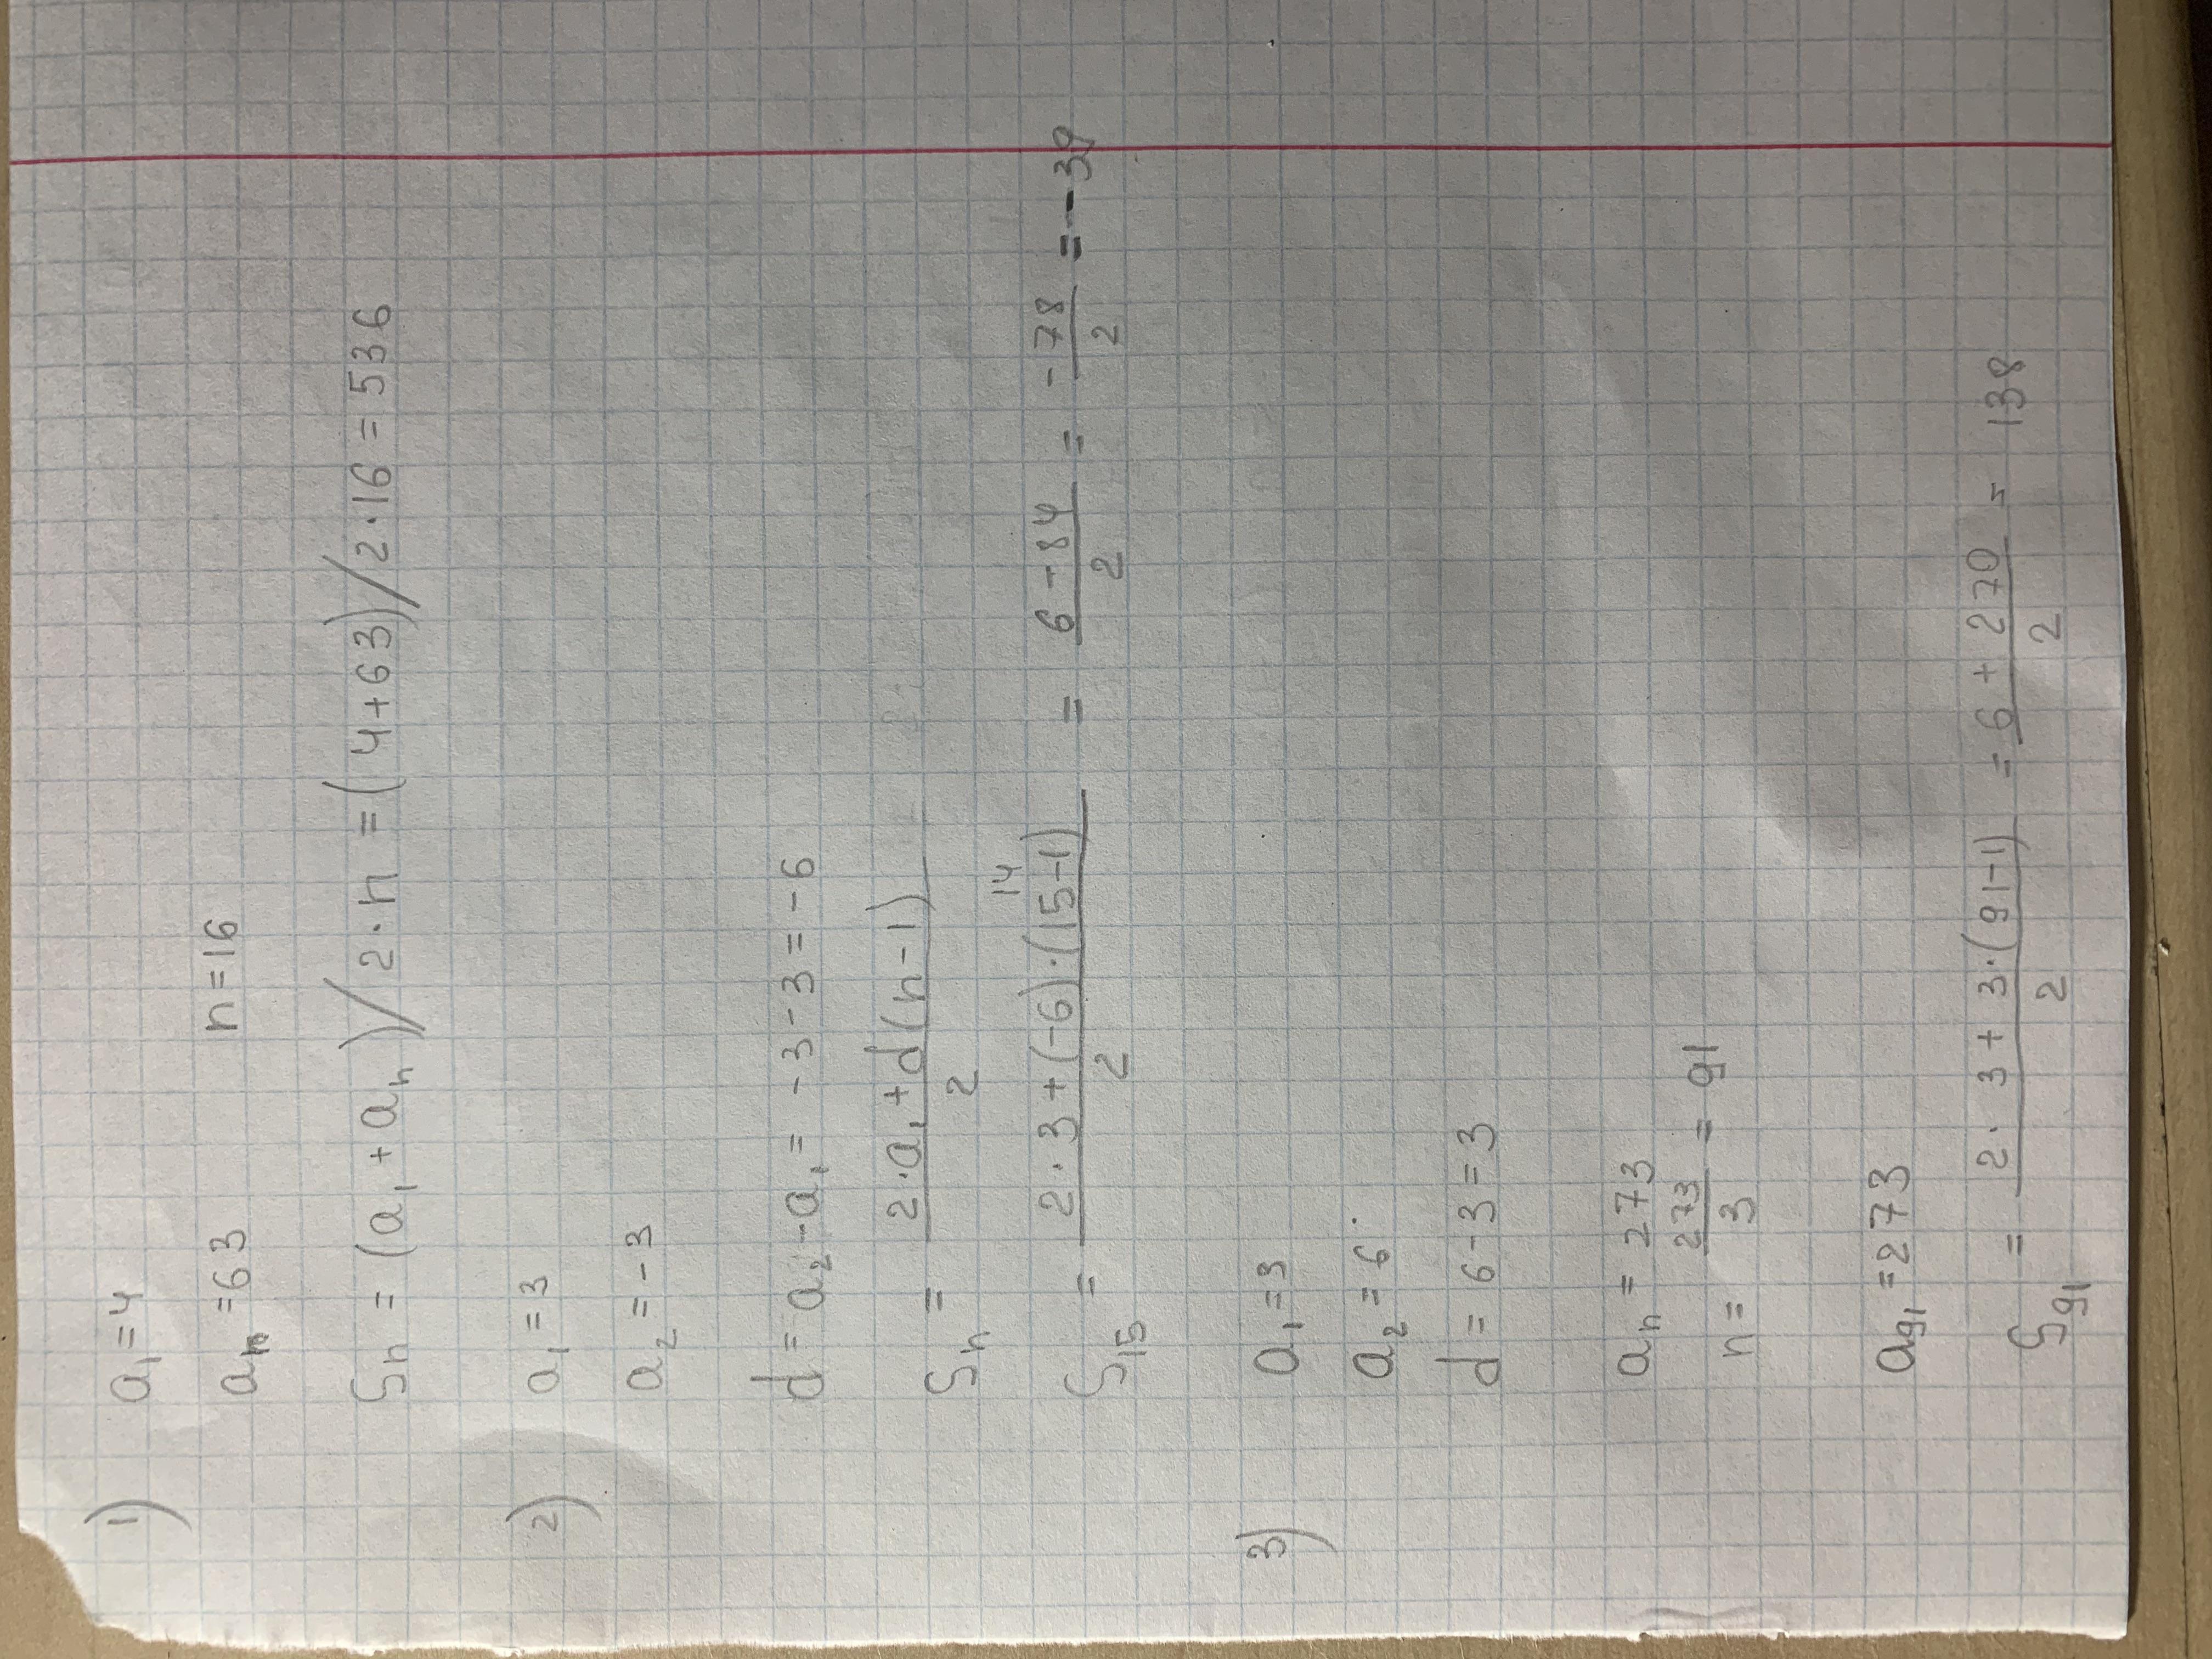 1) a₁=4
aₙ=63 n=16
Sₙ = (a₁+aₙ)/2·n=(4+63)/2·16=536
2) a₁=3
a₂=-3
d=a₂-a₁=-3-3=-6
Sₙ = (2·a₁+d(n-1))/2
14
S₁₅ = (2·3+(-6)·(15-1))/2 = (6-84)/2 = -78/2 =-39
3) a₁=3
a₂=6
d=6-3=3
aₙ=273
n= 273/3 = 91
a₉₁=273
S₉₁ = (2·3+3·(91-1))/2 = (6+270)/2 = 138